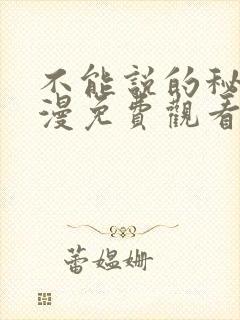 不能說的秘
漫免費觀看
蕾媼姍